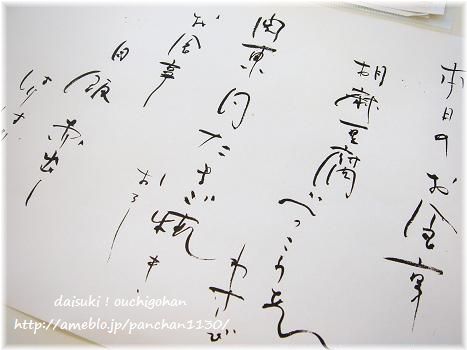 本日のお食事
胡麻豆腐 べっこうあん
わさび
関東 たまご焼
おろし
お食事
白飯 赤出し
daisuki ! ouchigohan
http://ameblo.jp/panchan1130/